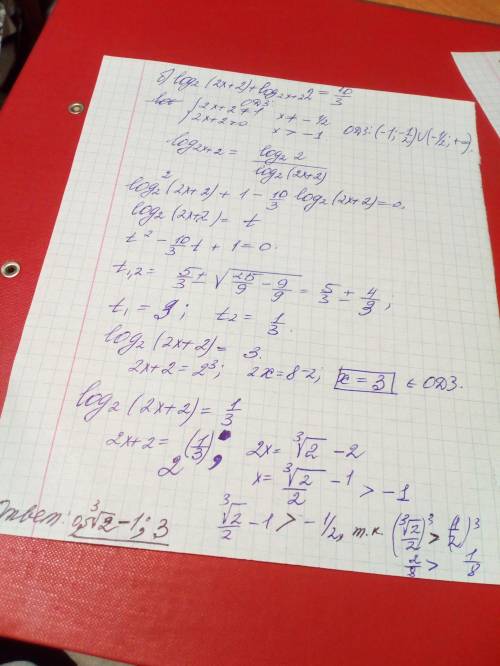 б) log₂(2x+2)+log₂ₓ₊₂2 = 10/3
ОДЗ:
{2x+2≠1 x ≠ -1/2
2x+2>0 x > -1 ОДЗ: (-1; -1/2)∪(-1/2; +∞).
log₂ₓ₊₂ = log₂2/log₂(2x+2)
log₂²(2x+2) + 1 - 10/3 log₂(2x+2)=0,
log₂(2x+2) = t
t² - 10/3 t + 1 = 0.
t₁,₂ = 5/3 ± √(25/9 - 9/9) = 5/3 ± 4/3;
t₁ = 3; t₂ = 1/3.
log₂(2x+2) = 3.
2x+2 = 2³; 2x = 8-2; x = 3 ∈ ОДЗ.
log₂(2x+2) = 1/3
2x+2 = 2^(1/3); 2x = ∛2 - 2
x = ∛2/2 - 1 > -1
∛2/2 - 1 > -1/2, т.к. (∛2/2)³ > (1/2)³
2/8 > 1/8
Ответ: 0,5∛2-1; 3